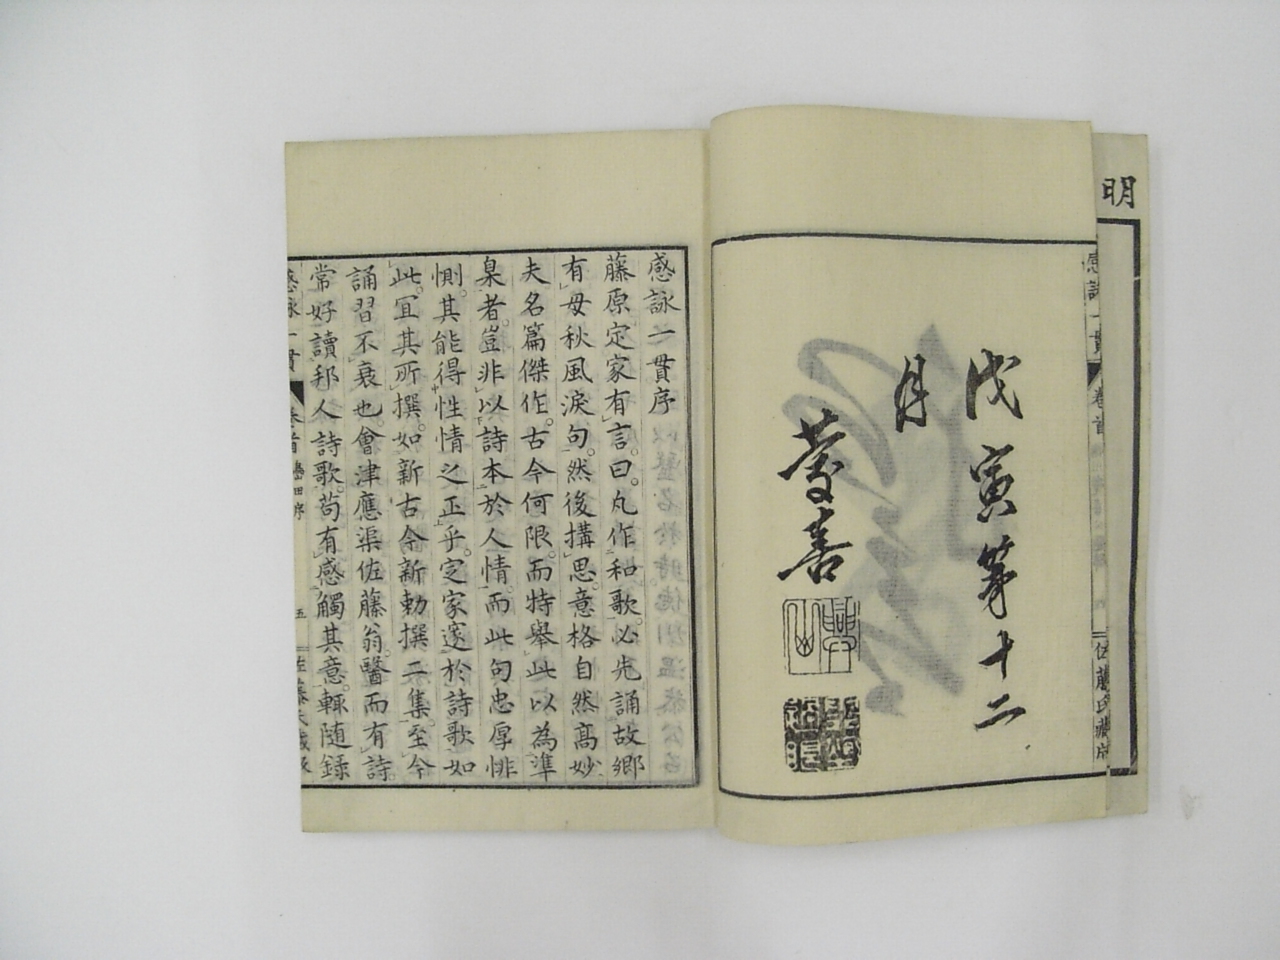 明
戊寅第十二
月
芳善
感詠一貫
卷首
佐藤氏藏版
感詠一貫序
藤原定家有言。曰。凡作和歌。必先誦故鄉
有母秋風淚句。然後搆思。意格自然高妙
夫名篇傑作。古今何限。而特舉此以為準
臬者。豈非以詩本於人情。而此句忠厚悱
惻。其能得性情之正乎。定家邃於詩歌如
此。冝其所撰。如新古今新勅撰二集。至今
誦習不衰也。會津應渠佐藤翁。醫而有詩。
常好讀邦人詩歌。苟有感觸其意。輙随錄
感詠一貫
卷首
五
佐藤氏藏版